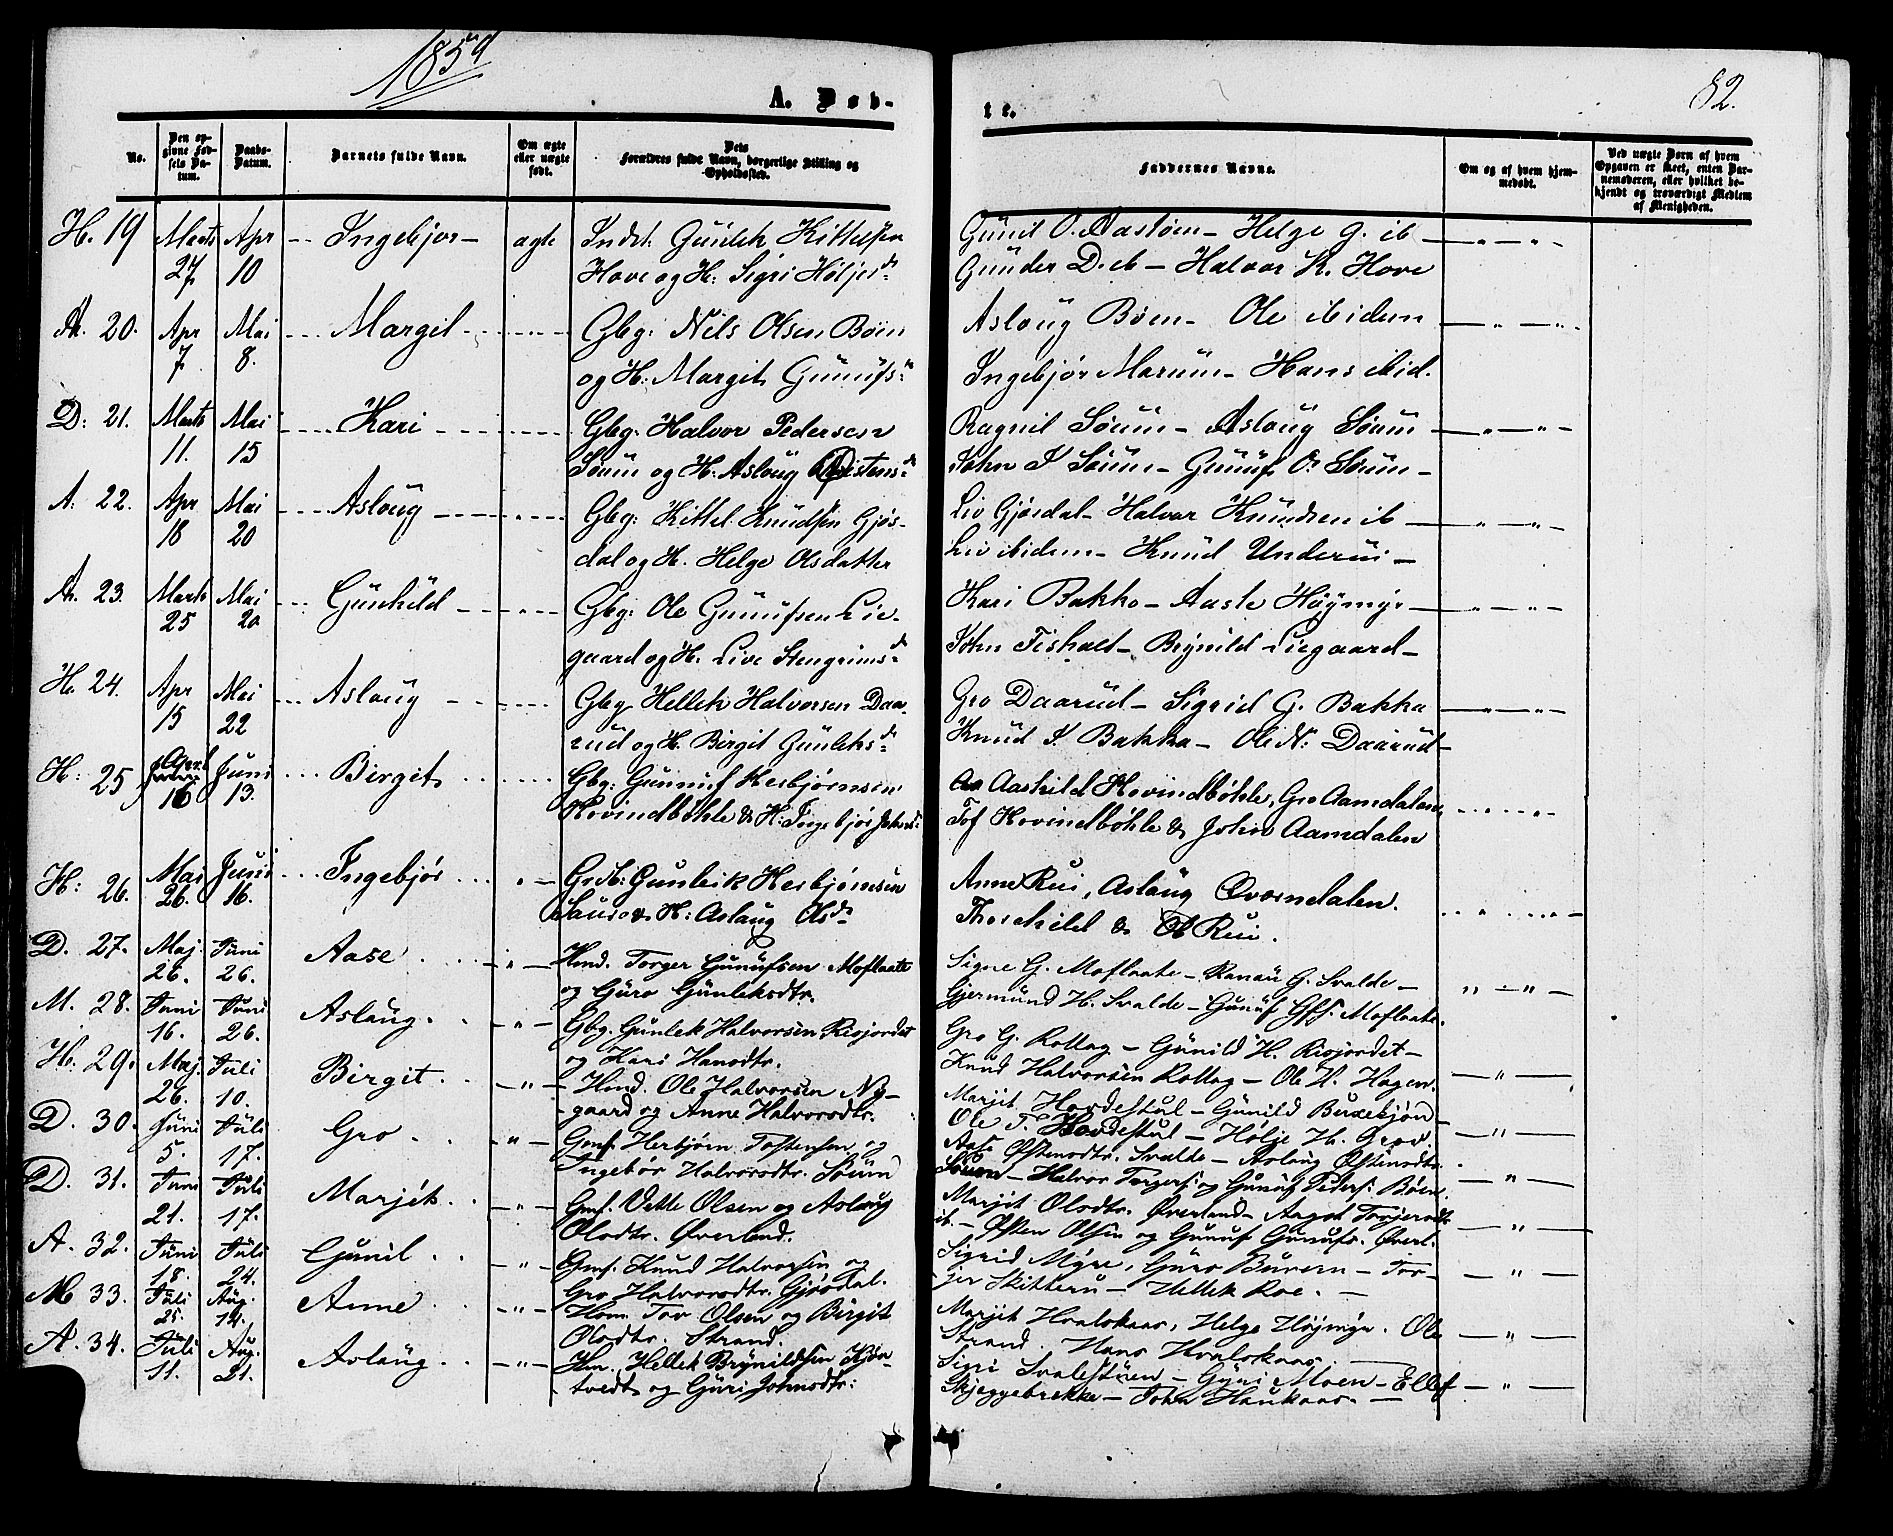 1859
A. Døb-
te.
82.
No.
Den opgivne Fødsels Datum.
Daabs-Datum.
Barnets fulde Navn.
Om ægte eller uægte født.
Dets Forældres fulde Navn, borgerlige Stilling og Opholdssted.
Faddernes Navne.
Om og af hvem hjemmedøbt.
Ved uægte Børn af hvem Opgaven er skeet, enten Barnemoderen, eller hvilket bekjendt og troværdigt Medlem af Menigheden.
H. 19 Marts 27 Apr 10 Ingebjor ægte Indst: Gunlek Kittelsen
Hove og H: Sigri Høljesd.
Gunil O. Aastøen - Helge G. ib
Gunder D. ib - Halvor K. Hove
A. 20. Apr 7 Mai 8. Margit Gbg: Nils Olsen Bøen
og H: Margit Gunufsd.
Asloug Bøen - Ole ibidem
Ingebjør Marum - Hans ibid.
D: 21. Marts 11. Mai 15 Kari Gbg: Halvor Pedersen
Søum og H: Asloug Østensd.
Ragnil Søum - Asloug Søum
John I Søum - Gunuf O. Søum
A. 22. Apr 18 Mai 20 Asloug Gbg: Kittel Knudsen Gjøs-
dal og H. Helge Olsdatter
Liv Gjøsdal - Halvor Knudsen ib
Liv ibidem - Knud Underui
A. 23. Marts 25 Mai 20 Gunhild Gbg: Ole Gunufsen Lie-
gaard og H. Live Stengrimsd.
Kari Bakko - Aaste Høymyr
John Fishold - Brynild Liegaard
H. 24. Apr 15 Mai 22 Asloug Gbg Hellek Halvorsen Daa-
rud og H. Birgit Gunleksd.
Gro Daarud - Sigrid G. Bakka
Knud I. Bakka - Ole N: Daarud
H: 25 April 16 Juni 13. Birgit Gbg: Gunnuf Herbjørnsen
Hovindbøhle & H: Torgebjør Johnsd.
Aaskild Hovindbøhle, Gro Aamdalen
Tof Hovindbøhle & John Aamdalen
H: 26. Mai 26. Juni 16. Ingebjør Grdb: Gunleik Herbjørnsen
& H: Aslaug Olsd.
Anne Rui, Aslaug Qværndalen.
Thorkild & Ol Rui.
D. 27. Maj. 26. Juni 26. Aase Hmd. Torger Gunufsen Moflaate
og Guro Gunleksdtr.
Signe G. Moflaate - Ranau G. Svalde
Gjermund H. Svalde - Gunuf Moflaate.
M. 28. Juni 16. Juni 26. Aslaug. Gbg. Gunlek Halvorsen Risjordet
og Kari Hansdtr.
Gro G. Rollag - Gunild H. Risjordet
Knud Halvorsen Rollag - Ole H. Hagen.
H. 29. Maj. 26. Juli 10. Birgit. Hmd. Ole Halvorsen Ny-
gaard og Anne Halvorsdtr.
Marjit Hovdestul - Gunild Buxebjøn
Ole T. Hovdestul - Hølje H. Grov.
D. 30. Juni 5. Juli 17. Gro Gmf. Herbjørn Tostensen og
Ingebør Halvorsdtr. Søum
Aase Østensdtr. Svalde - Aslaug Østensdtr.
Søum - Halvor Torgers. og Gunuf Peders. Bøen.
D. 31. Juni 21. Juli 17. Marjit. Gmf. Vetle Olsen og Aslaug
Olsdtr. Øverland.
Marjit Olsdtr. Øverland - Aagot Torjersdtr
ib. - Østen Olsen og Gunuf Gunufs. Øverl.
A. 32. Juni 18. Juli 24. Gunil Gmf. Knud Halvorsen og
Gro Halvorsdtr. Gjøsdal.
Sigrid Myre, Guro Buvern - Tor-
jer Skitteru - Hellek Roe.
M 33. Juli 25. Aug. 14. Anne Hom. Tov Olsen og Birgit
Olsdtr. Strand.
Marjit Hvalskaas, Helge Høymyr. Ole
Strand. Hans Hvalskaas.
A. 34. Juli 11. Aug. 21. Aslaug. Hm. Hellek Brynildsen Kjøn-
tvedt og Guri Johnsdtr:
Sigri Svalestøen - Gyri Moen - Ellef
Skjeggebrekke - John Haukaas.